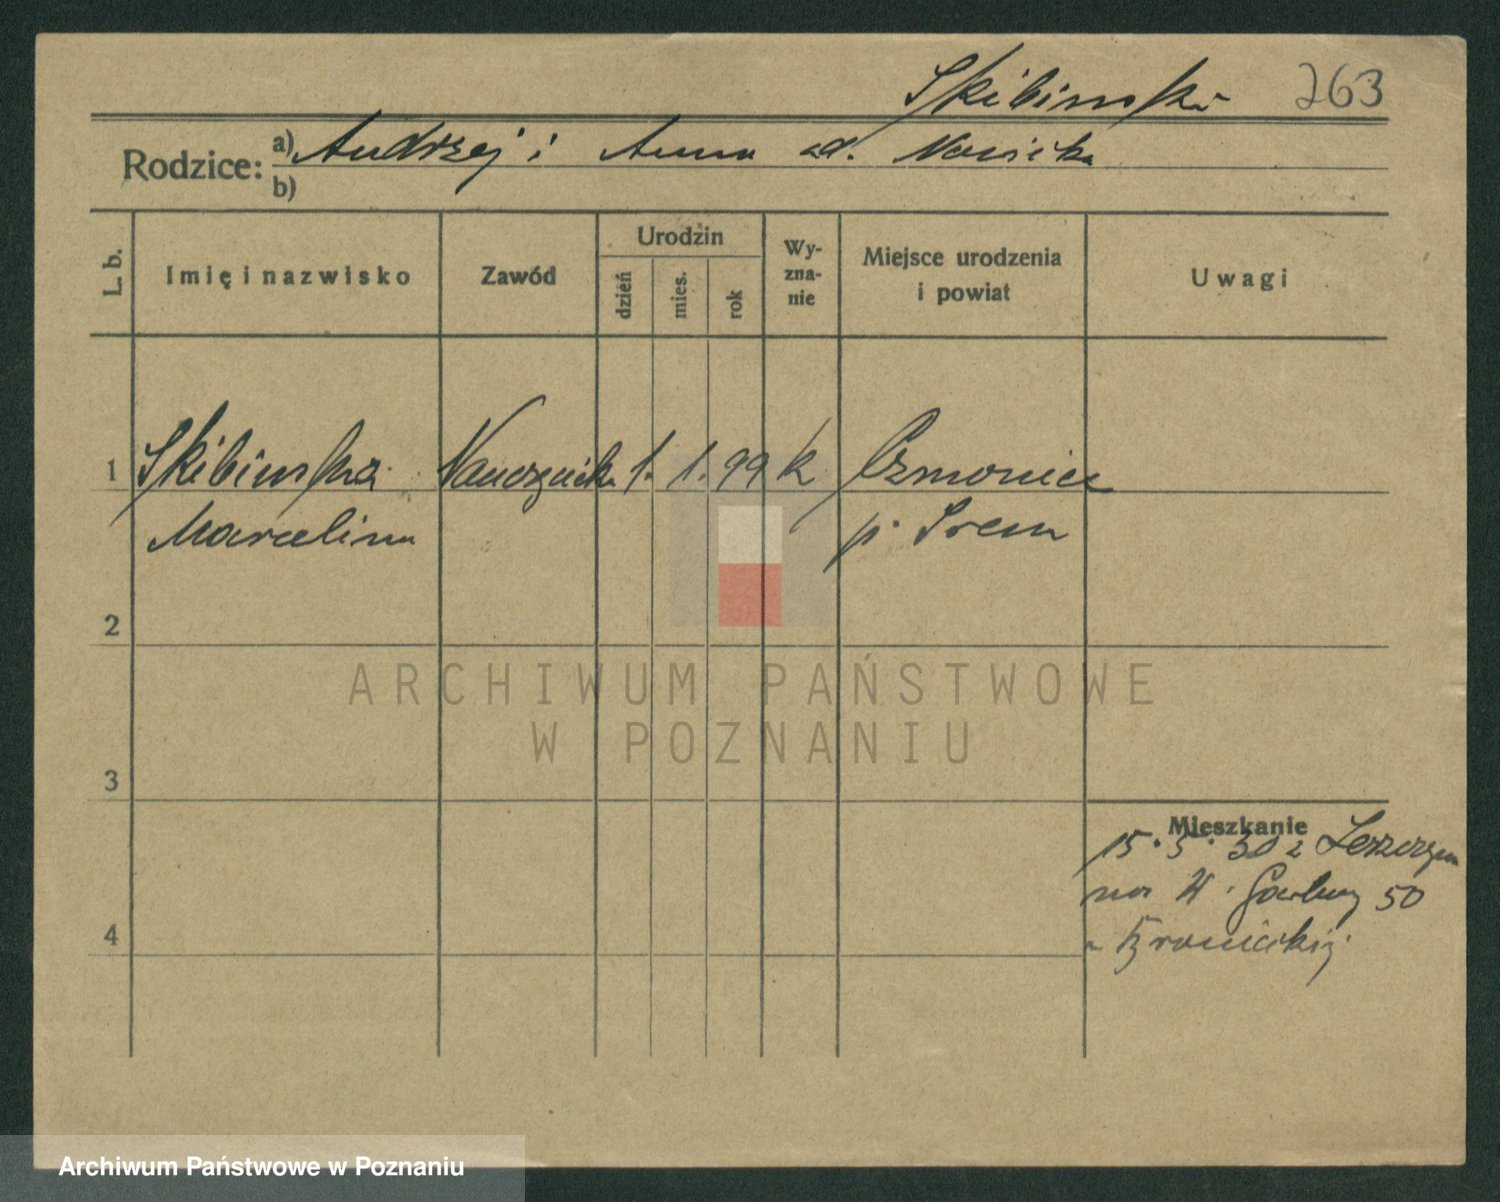 Skibińska 263
Rodzice: a) Andrzej i Anna zd. Nowicka
b)
L. b.
Imię i nazwisko
Zawód
Urodzin
dzień
mies.
rok
Wy-
zna-
nie
Miejsce urodzenia
i powiat
Uwagi
1 Skibińska Nauczycielka 1. 1. 99 k Czmoniec
Marcelina p. Śrem
2
ARCHIWUM PAŃSTWOWE
W POZNANIU
3
Mieszkanie
15.5.30 z
na W. Garbary 50
u
4
Archiwum Państwowe w Poznaniu